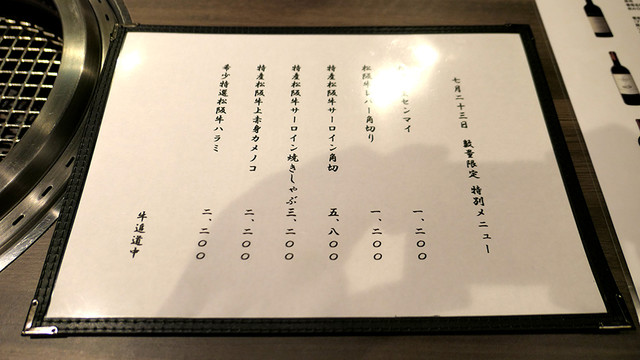 七月二十三日 数量限定 特別メニュー
センマイ 一、二〇〇
松阪牛レバー角切り 一、二〇〇
特産松阪牛サーロイン角切 五、八〇〇
特産松阪牛サーロイン焼きしゃぶ 三、二〇〇
特産松阪牛上赤身カメノコ 二、二〇〇
希少特選松阪牛ハラミ 二、二〇〇
牛追道中